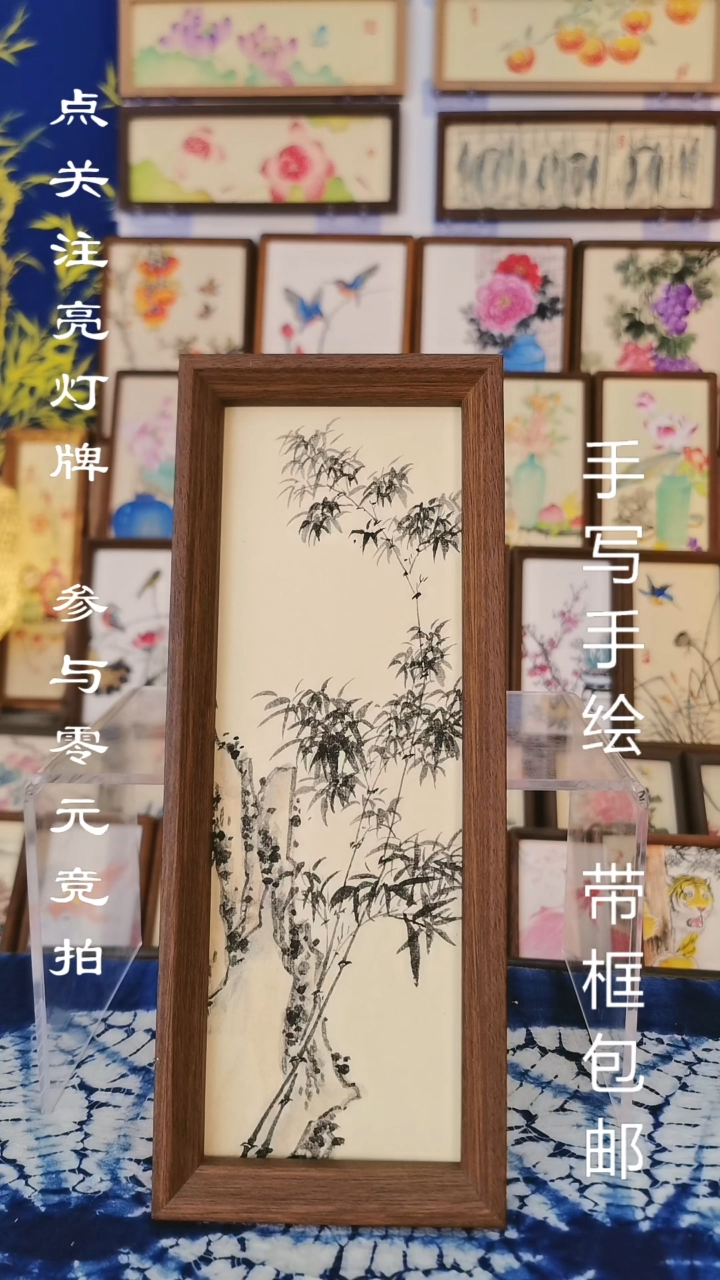 点关注亮灯牌 参与零元竞拍
手写手绘 带框包邮